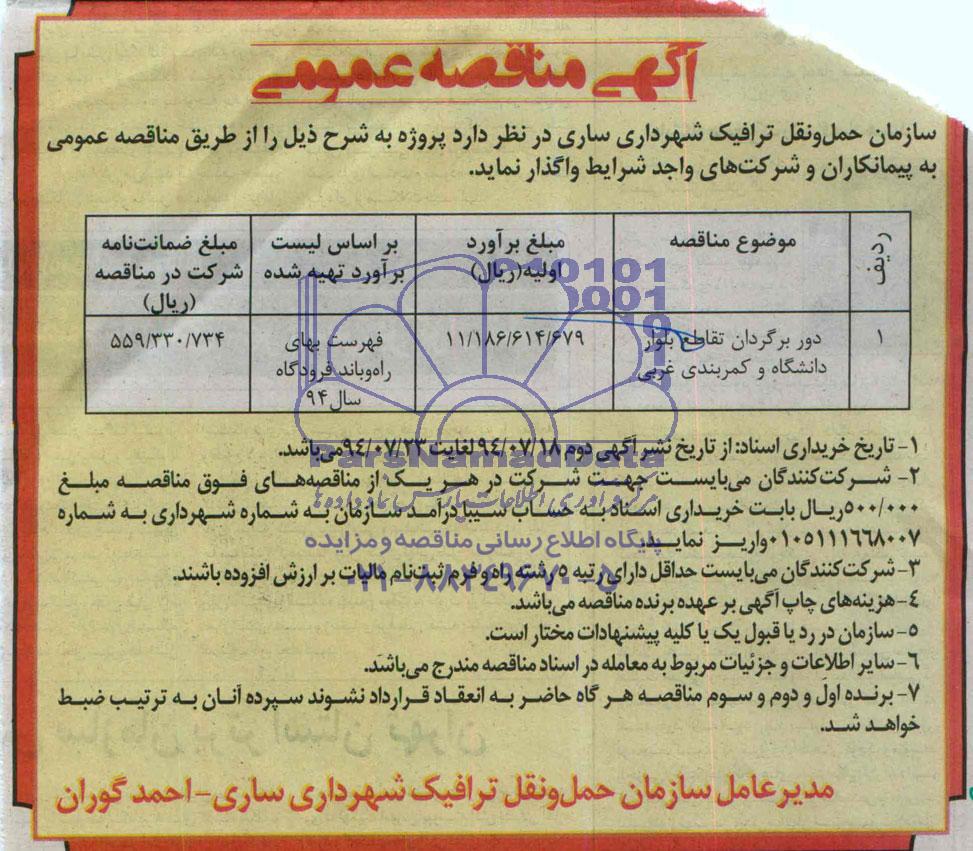 آگهی مناقصه عمومی
سازمان حمل‌ونقل ترافیک شهرداری ساری در نظر دارد پروژه به شرح ذیل را از طریق مناقصه عمومی
به پیمانکاران و شرکت‌های واجد شرایط واگذار نماید.
ردیف
موضوع مناقصه
مبلغ برآورد
اولیه(ریال)
بر اساس لیست
برآورد تهیه شده
مبلغ ضمانت‌نامه
شرکت در مناقصه
(ریال)
۱
دور برگردان تقاطع بلوار
دانشگاه و کمربندی غربی
۱۱/۱۸۶/۶۱۴/۶۷۹
فهرست بهای
راه‌وباند فرودگاه
سال۹۴
۵۵۹/۳۳۰/۷۳۴
۱- تاریخ خریداری اسناد: از تاریخ نشر آگهی دوم ۹۴/۰۷/۱۸ لغایت ۹۴/۰۷/۲۳می‌باشد.
۲- شرکت‌کنندگان می‌بایست جهت شرکت در هر یک از مناقصه‌های فوق مناقصه مبلغ
۵۰۰/۰۰۰ریال بابت خریداری اسناد به حساب سیبا درآمد سازمان به شماره شهرداری به شماره
۰۱۰۵۱۱۱۶۶۸۰۰۷واریز نمایند.
۳- شرکت‌کنندگان می‌بایست حداقل دارای رتبه ۵ رشته راه و فرم ثبت‌نام مالیات بر ارزش افزوده باشند.
۴- هزینه‌های چاپ آگهی بر عهده برنده مناقصه می‌باشد.
۵- سازمان در رد یا قبول یک یا کلیه پیشنهادات مختار است.
۶- سایر اطلاعات و جزئیات مربوط به معامله در اسناد مناقصه مندرج می‌باشد.
۷- برنده اول و دوم و سوم مناقصه هر گاه حاضر به انعقاد قرارداد نشوند سپرده آنان به ترتیب ضبط
خواهد شد.
مدیرعامل سازمان حمل‌ونقل ترافیک شهرداری ساری - احمد گوران
ParsNamadData
پایگاه اطلاع رسانی مناقصه و مزایده